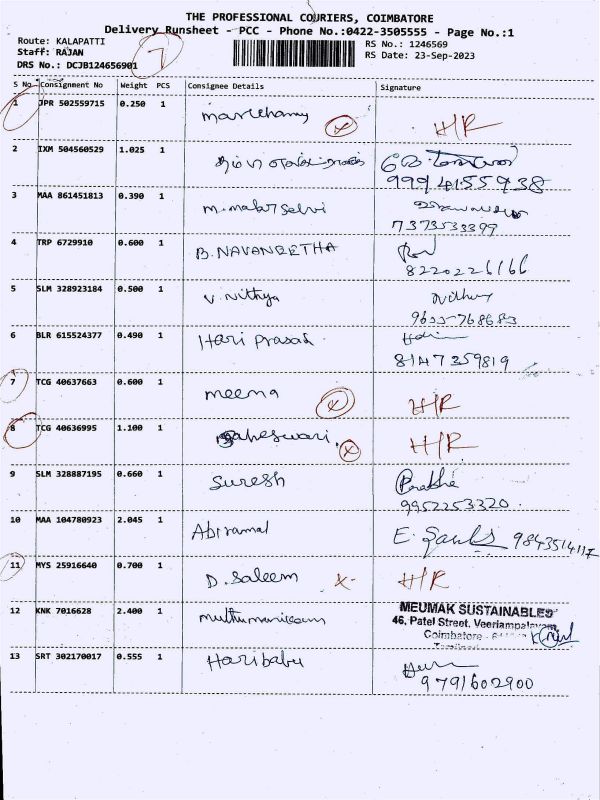 THE PROFESSIONAL COURIERS, COIMBATORE
Delivery Runsheet - PCC - Phone No.:0422-3505555 - Page No.:1
Route: KALAPATTI
Staff: RAJAN
DRS No.: DCJB124656901
7
RS No.: 1246569
RS Date: 23-Sep-2023
S No Consignment No Weight PCS Consignee Details Signature
1 JPR 502559715 0.250 1 x H/R
2 IXM 504560529 1.025 1
9994155938
3 MAA 861451813 0.390 1 M. Malar Selvi
7373533399
4 TRP 6729910 0.600 1 B. NAVANEETHA
8220226166
5 SLM 328923184 0.500 1 V. Nithya Nithya
9655768683
6 BLR 615524377 0.490 1 Hari Prasad Hari
8147359819
7 TCG 40637663 0.600 1 meena x H/R
8 TCG 40636995 1.100 1 Maheswari. x H/R
9 SLM 328887195 0.660 1 Suresh
9952253320
10 MAA 104780923 2.045 1 Abiramal E. 9843514117
11 MYS 25916640 0.700 1 D. Saleem x H/R
12 KNK 7016628 2.400 1 muthumanickam MEUMAK SUSTAINABLES
46, Patel Street, Veeriampalayam,
Coimbatore -
13 SRT 302170017 0.555 1 Haribabu
9791602900